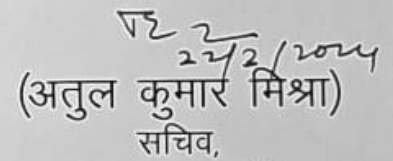 22/2/2024
(अतुल कुमार मिश्रा)
सचिव,